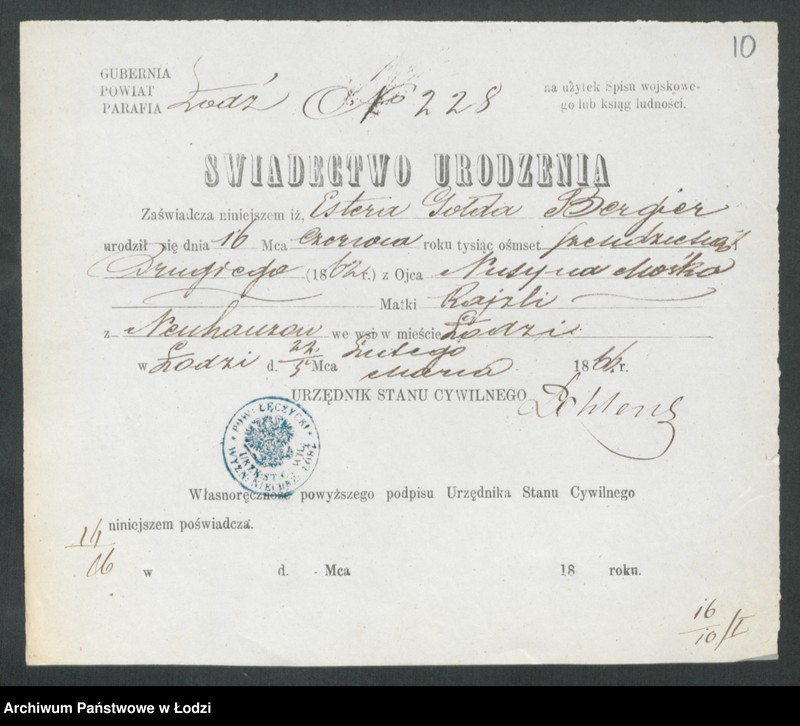 10
GUBERNIA
POWIAT
PARAFIA Łodź No 228
na użytek Spisu wojskowe-
go lub ksiąg ludności.
SWIADECTWO URODZENIA
Zaświadcza niniejszem iż, Estera Gołda Bergier
urodził się dnia 16 Mca Czerwca roku tysiąc ośmset
Drugiego (1862 r.) z Ojca Mośka
Matki Rajzli
z Neuhauzów we wsi w mieście Łodzi
w Łodzi d. 22/5 Mca Lutego
Marca 1866 r.
URZĘDNIK STANU CYWILNEGO
POW. ŁĘCZYCKI
Własnoręczność powyższego podpisu Urzędnika Stanu Cywilnego
niniejszem poświadcza.
w d. Mca 18 roku.
16/10/I
Archiwum Państwowe w Łodzi